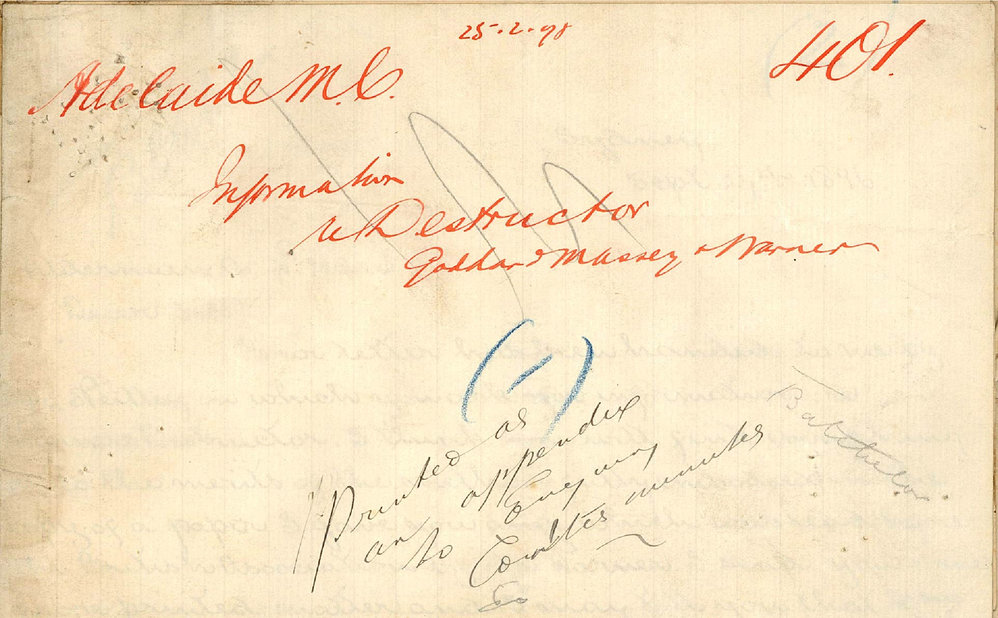 25.2.98
401.
Adelaide M.C.
Information
re Destructor
Goddard Massey & Warner
(1)
Printed as
an appendix
to Enquiry
Comtes minutes
Batchelor